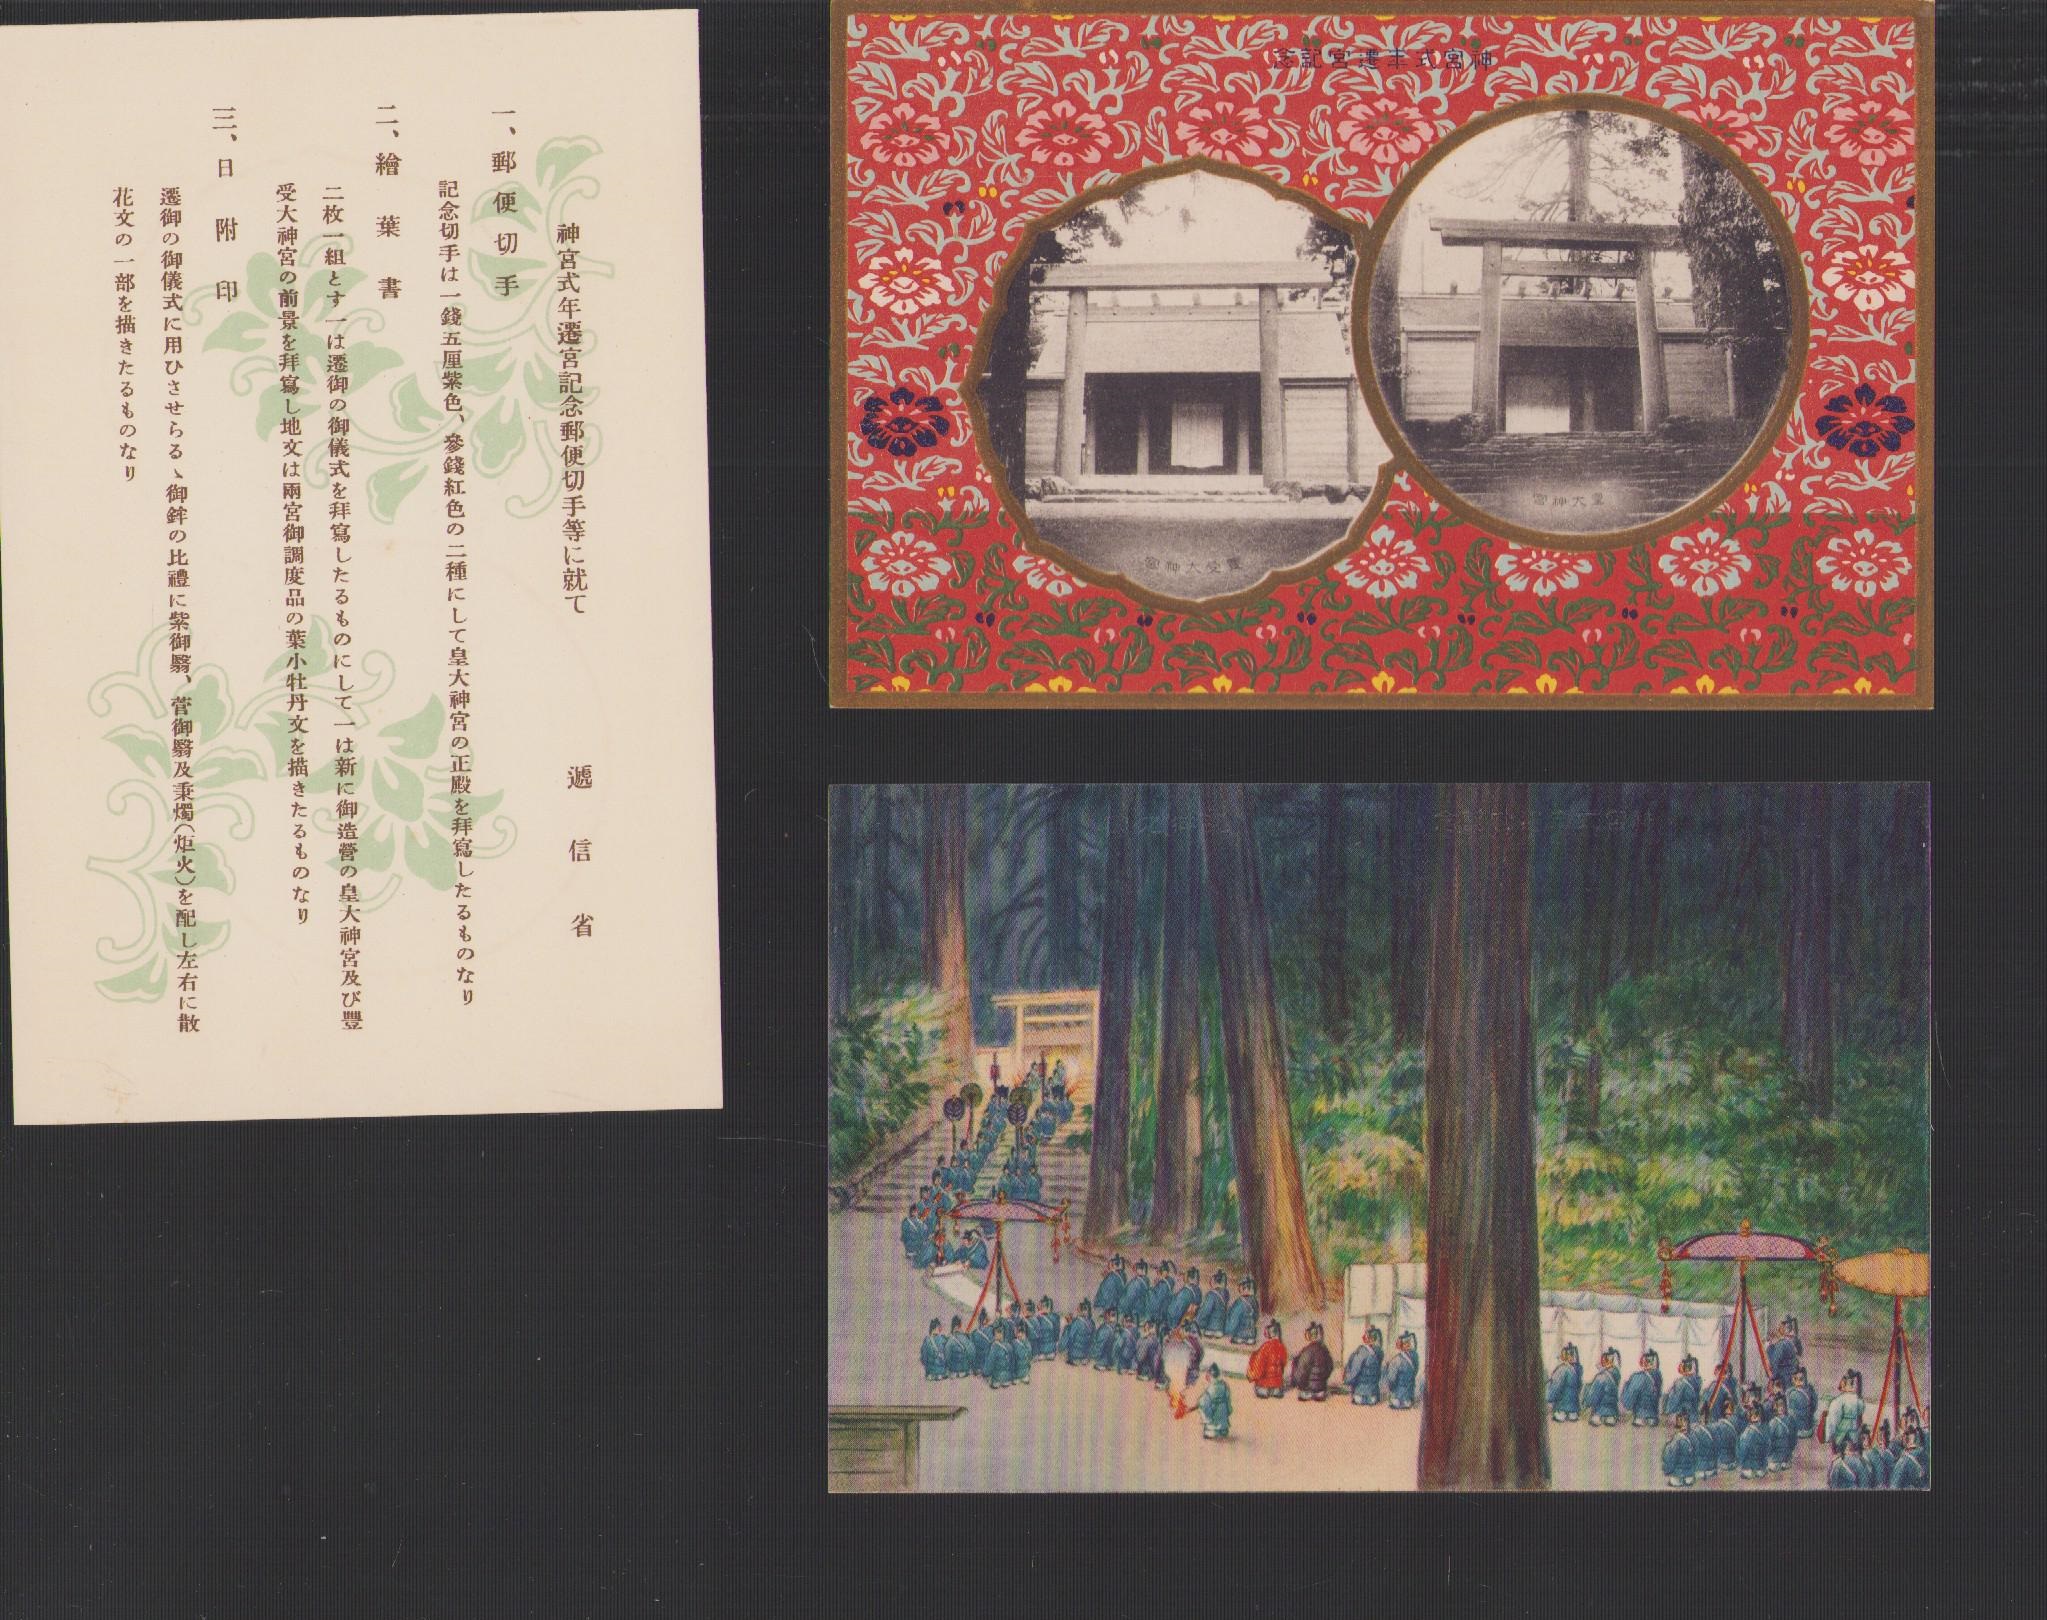 神宮式年遷宮記念郵便切手等に就て
遞信省
一、郵便切手
記念切手は一錢五厘紫色、參錢紅色の二種にして皇大神宮の正殿を拜寫したるものなり
二、繪葉書
二枚一組とす一は遷御の御儀式を拜寫したるものにして一は新に御造營の皇大神宮及び豐
受大神宮の前景を拜寫し地文は兩宮御調度品の葉小牡丹文を描きたるものなり
三、日附印
遷御の御儀式に用ひさせらるゝ御鉾の比禮に紫御翳、菅御翳及秉燭(炬火)を配し左右に散
花文の一部を描きたるものなり
念記宮遷年式宮神
宮神大皇
宮神大受豐